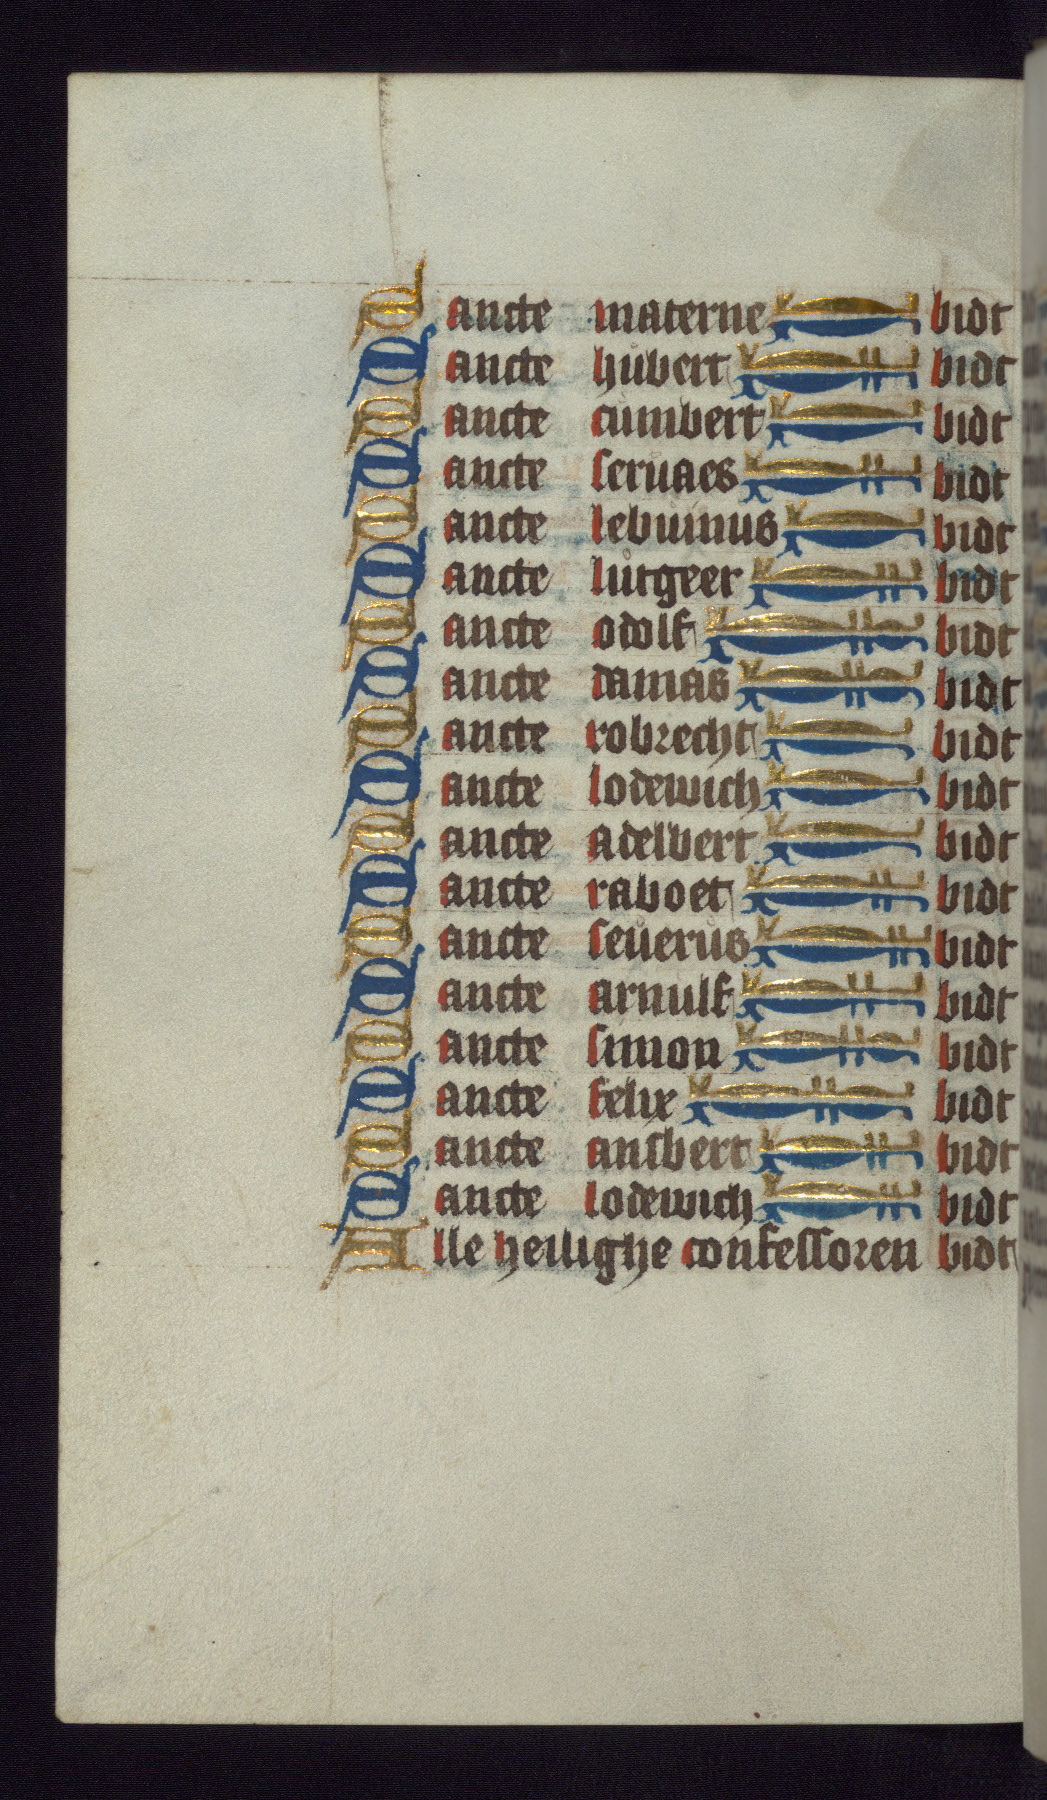 Sancte materne bidt
Sancte hubert bidt
Sancte cunibert bidt
Sancte seruaes bidt
Sancte lebuinus bidt
Sancte lutgeer bidt
Sancte odolf bidt
Sancte damas bidt
Sancte robrecht bidt
Sancte lodewich bidt
Sancte adelbert bidt
Sancte raboet bidt
Sancte seuerus bidt
Sancte arnulf bidt
Sancte simon bidt
Sancte felix bidt
Sancte ansbert bidt
Sancte lodewich bidt
Alle heilighe confessoren bidt